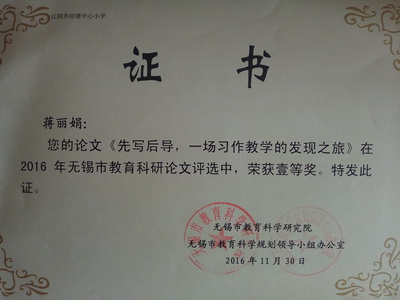 证书
蒋丽娟：
您的论文《先写后导，一场习作教学的发现之旅》在
2016 年无锡市教育科研论文评选中，荣获壹等奖。特发此
证。
无锡市教育科学研究院
无锡市教育科学规划领导小组办公室
2016 年 11 月 30 日